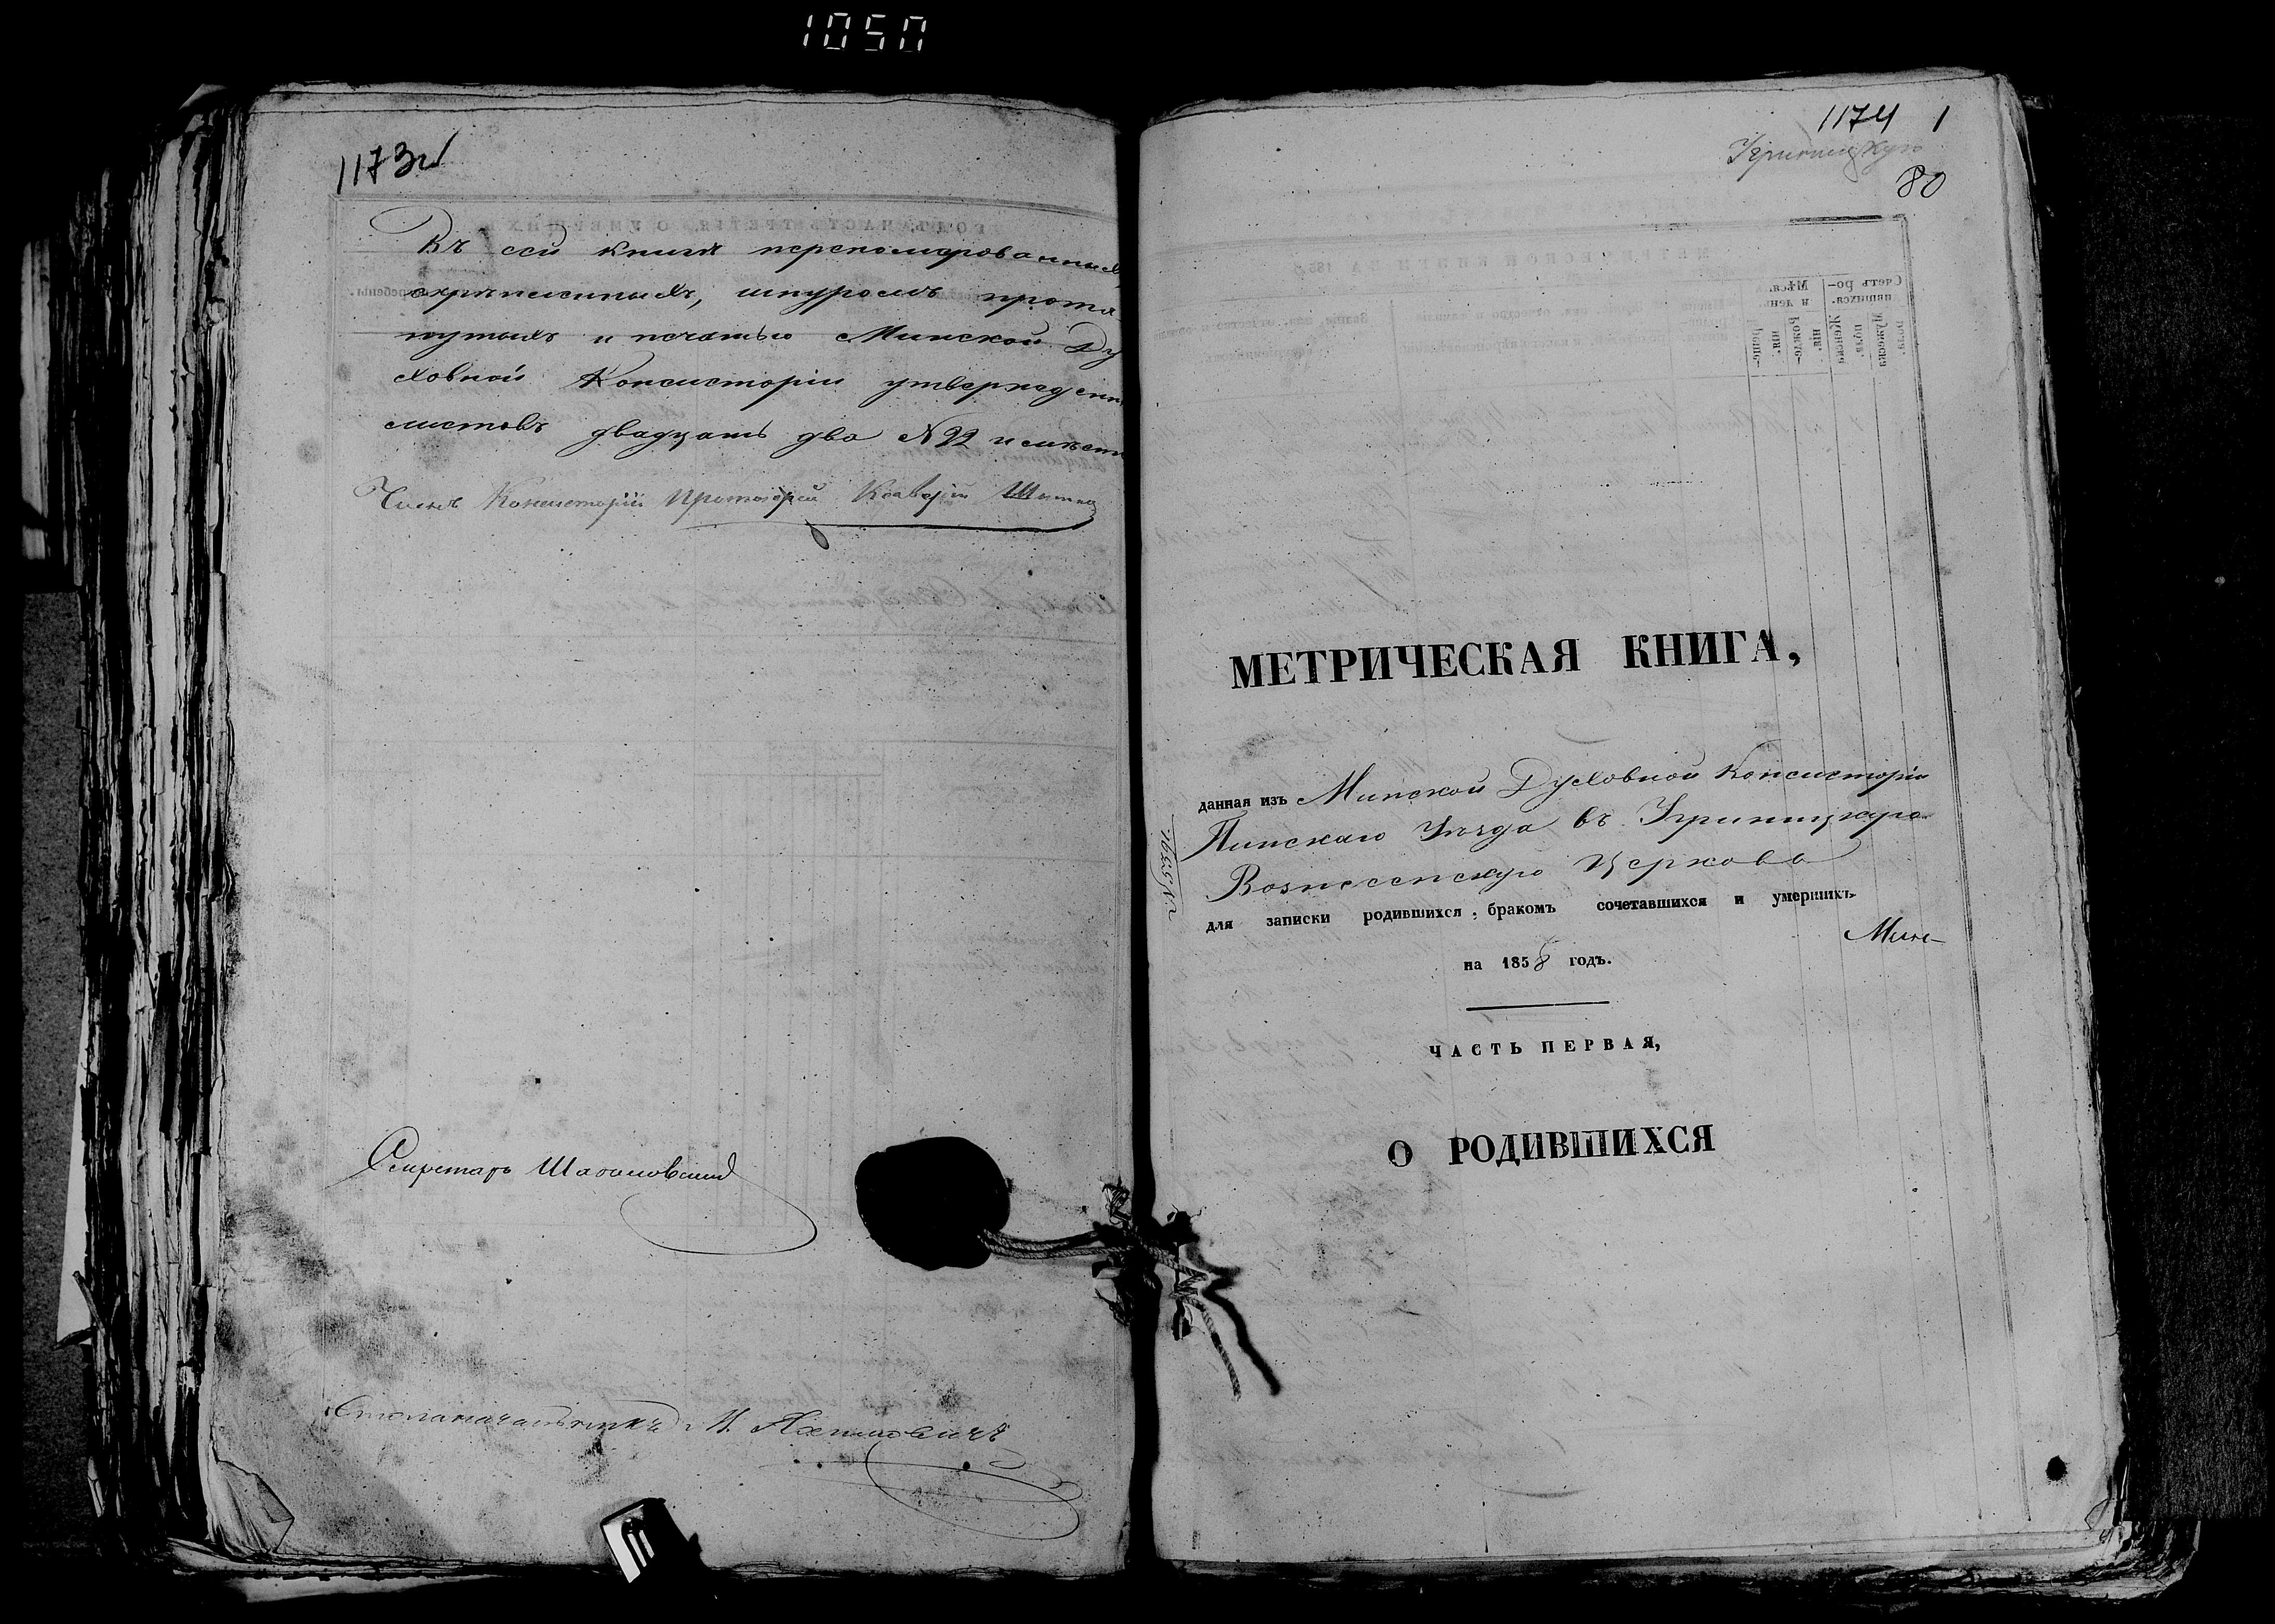 1050
1173
Въ сей книгѣ переномерованныхъ,
скрѣпленныхъ, шнуромъ протя
нутыхъ и печатью Минской Ду
ховной Консисторіи утвержденн
листовъ двадцать два №22
Членъ Консисторіи Протоіерей
Секретарь
Столоначальникъ
1174 1
80
МЕТРИЧЕСКАЯ КНИГА,
данная изъ Минской Духовной Консисторіи
Пинскаго Уѣзда въ Угриницкую
Вознесенскую Церковь
для записки родившихся, бракомъ сочетавшихся и умершихъ
Мин-
на 1858 годъ.
ЧАСТЬ ПЕРВАЯ,
О РОДИВШИХСЯ